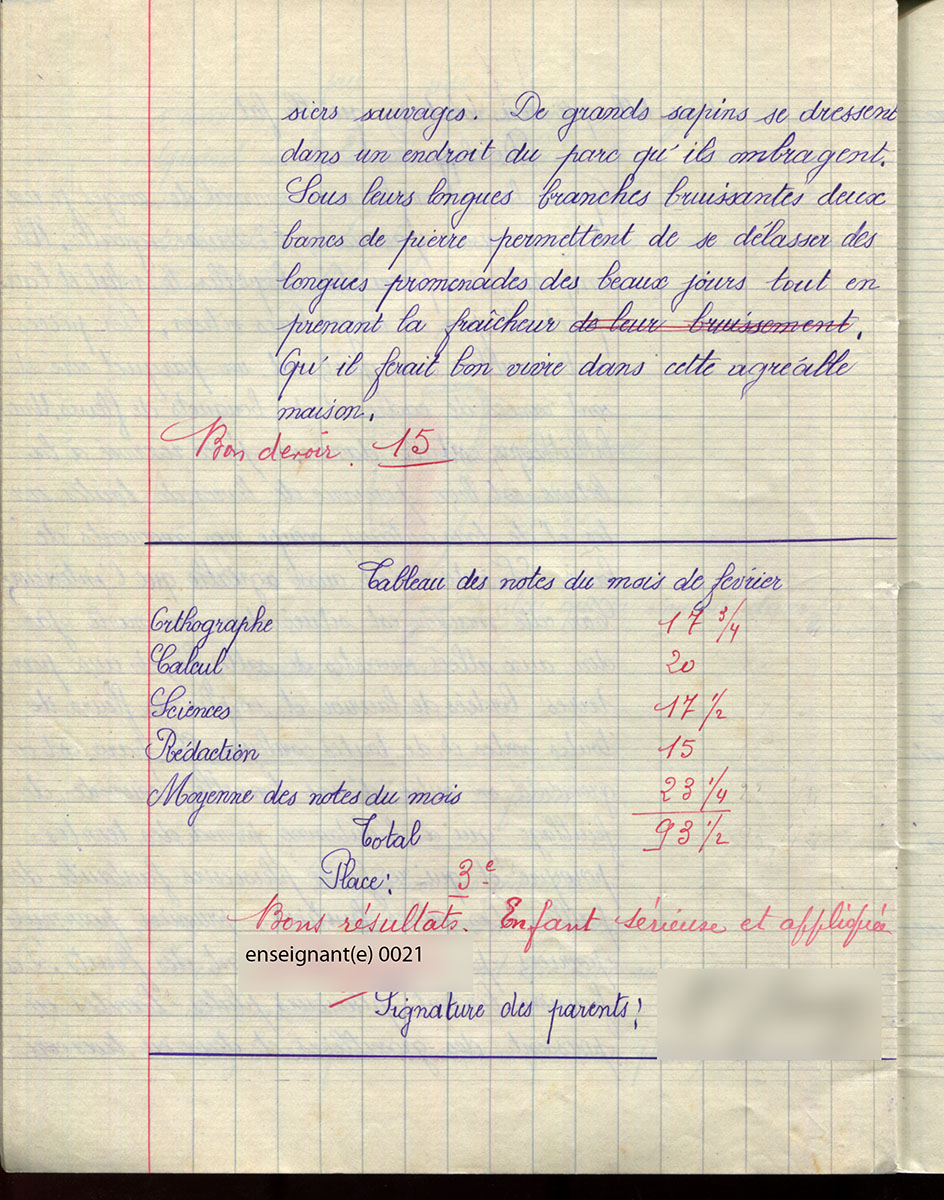 siers sauvages. De grands sapins se dressent
dans un endroit du parc qu'ils ombragent.
Sous leurs longues branches bruissantes deux
bancs de pierre permettent de se délasser des
longues promenades des beaux jours tout en
prenant la fraîcheur de leur bruissement.
Qu'il ferait bon vivre dans cette agréable
maison.
Bon devoir. 15
Tableau des notes du mois de février
Orthographe 17 3/4
Calcul 20
Sciences 17 1/2
Rédaction 15
Moyenne des notes du mois 23 1/4
Total 93 1/2
Place: 3e
Bons résultats. Enfant sérieuse et appliquée
enseignant(e) 0021
Signature des parents: